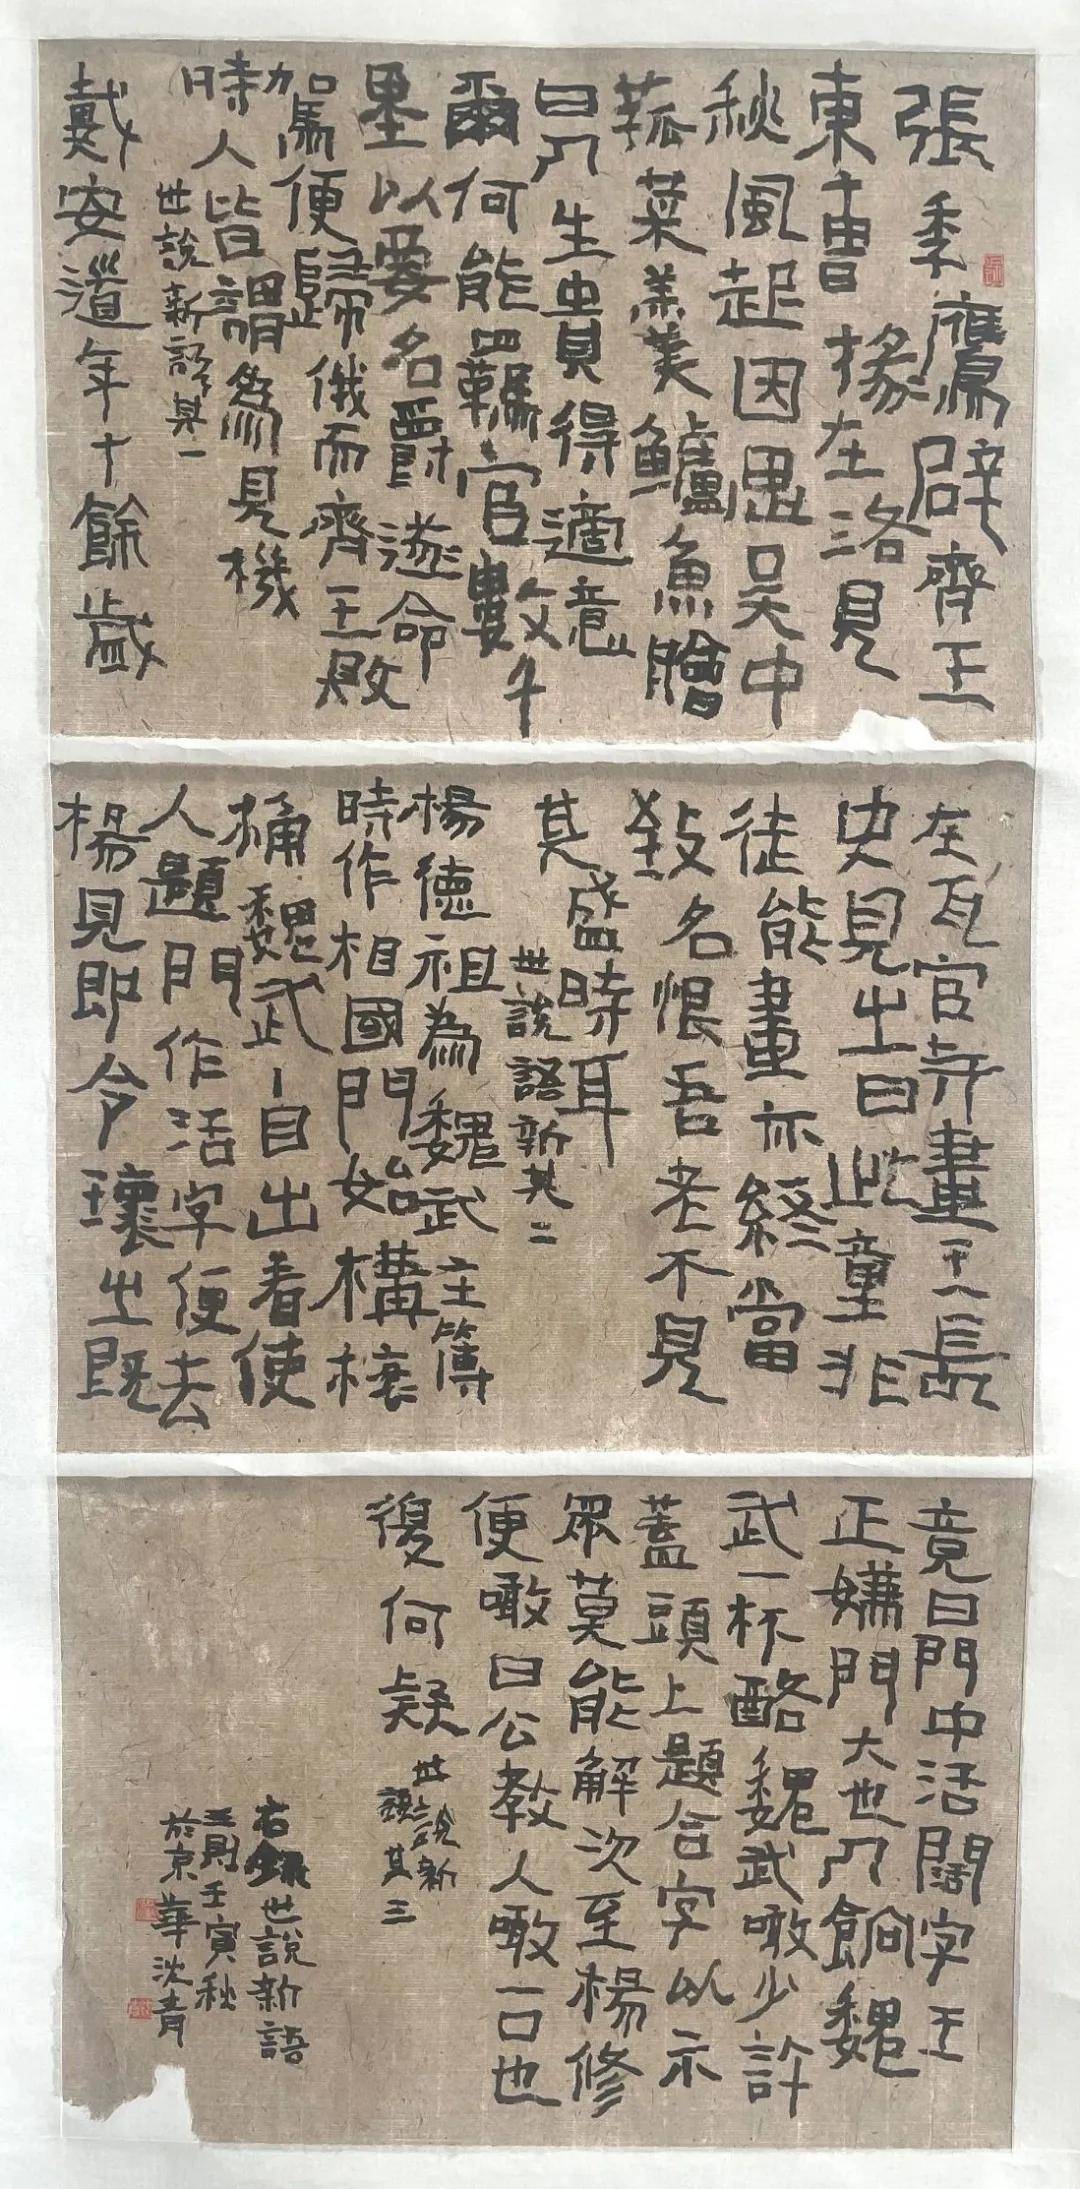 張季鷹辟齊王
東曹掾在洛見
秋風起因思吳中
菰菜羹美鱸魚膾
曰人生貴得適意
爾何能羈宦數千
里以要名爵遂命
駕便歸俄而齊王敗
時人皆謂為見機
世說新語其一
戴安道年十餘歲
在瓦官寺畫王長
史見之曰此童非
徒能畫亦終當
致名恨吾老不見
其盛時耳
世說語新其二
楊德祖為魏武主簿
時作相國門始構榱
桷魏武自出看使
人題門作活字便去
楊見即令壞之既
竟曰門中活闊字王
正嫌門大也人餉魏
武一杯酪魏武噉少許
蓋頭上題合字以示
眾莫能解次至楊修
便噉曰公教人噉一口也
復何疑
世說新
語其三
右錄世說新語
三則壬寅秋
於京華沈青